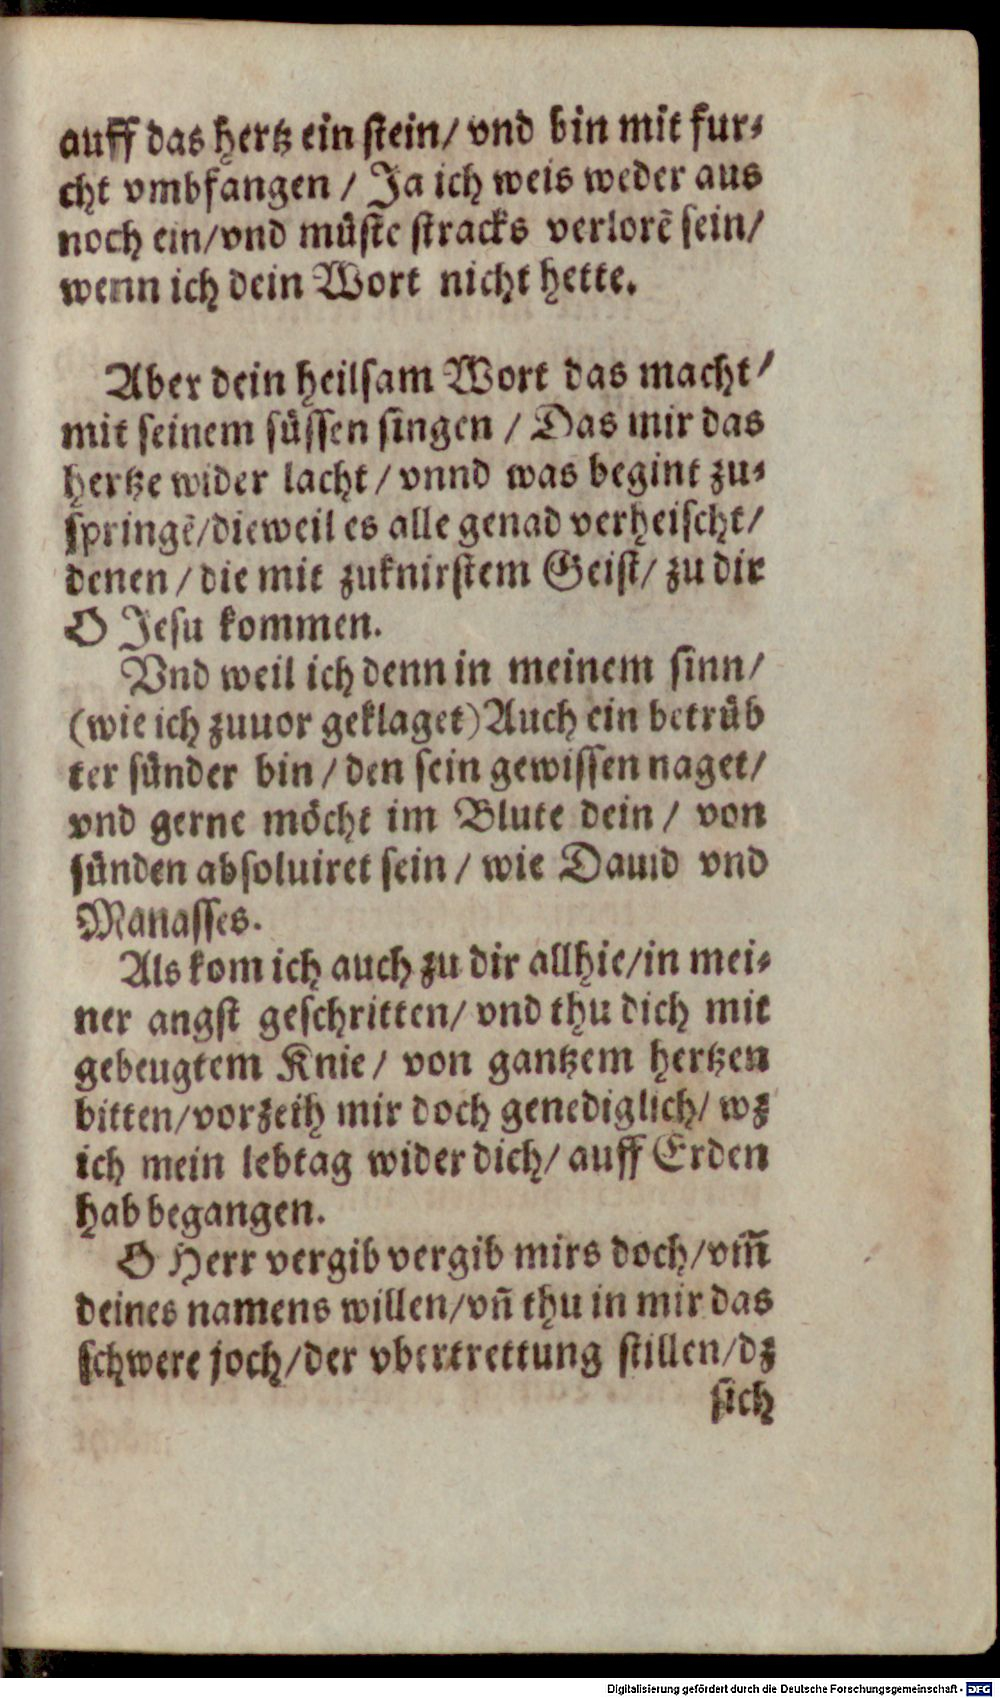 auff das hertz ein stein/ vnd bin mit fur-
cht vmbfangen / Ja ich weis weder aus
noch ein/vnd müste stracks verlorẽ sein/
wenn ich dein Wort nicht hette.
Aber dein heilsam Wort das macht/
mit seinem süssen singen / Das mir das
hertze wider lacht/ vnnd was begint zu-
springẽ/dieweil es alle genad verheischt/
denen / die mit zuknirstem Geist/ zu dir
O Jesu kommen.
Vnd weil ich denn in meinem sinn/
(wie ich zuuor geklaget) Auch ein betrüb
ter sünder bin / den sein gewissen naget/
vnd gerne möcht im Blute dein / von
sünden absoluiret sein / wie Dauid vnd
Manasses.
Als kom ich auch zu dir allhie/in mei-
ner angst geschritten/ vnd thu dich mit
gebeugtem Knie/ von gantzem hertzen
bitten/vorzeih mir doch genediglich/ wz
ich mein lebtag wider dich/ auff Erden
hab begangen.
O Herr vergib vergib mirs doch/vm̃
deines namens willen/vñ thu in mir das
schwere joch/der vbertrettung stillen/dz
sich
Digitalisierung gefördert durch die Deutsche Forschungsgemeinschaft - DFG